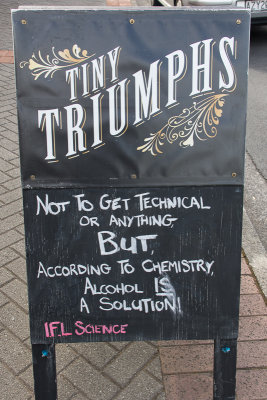 TINY
TRIUMPHS
NOT TO GET TECHNICAL
OR ANYTHING
BUT
ACCORDING TO CHEMISTRY,
ALCOHOL IS
A SOLUTION!
I.F.L SCIENCE